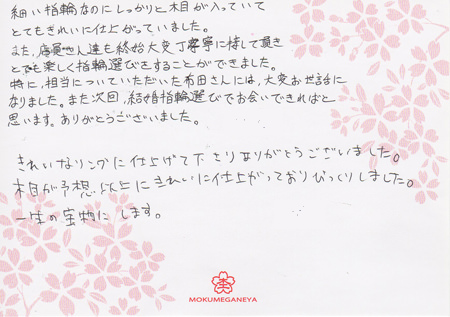 細い指輪なのにしっかりと木目が入っていて
とてもきれいに仕上がっていました。
また、店員さん達も終始大変丁寧に接して頂き
とても楽しく指輪選びをすることができました。
特に、担当についていただいた布田さんには、大変お世話に
なりました。また次回、結婚指輪選びでお会いできればと
思います。ありがとうございました。
きれいなリングに仕上げて下さりありがとうございました。
木目が予想以上にきれいに仕上がっておりびっくりしました。
一生の宝物にします。
MOKUMEGANEYA